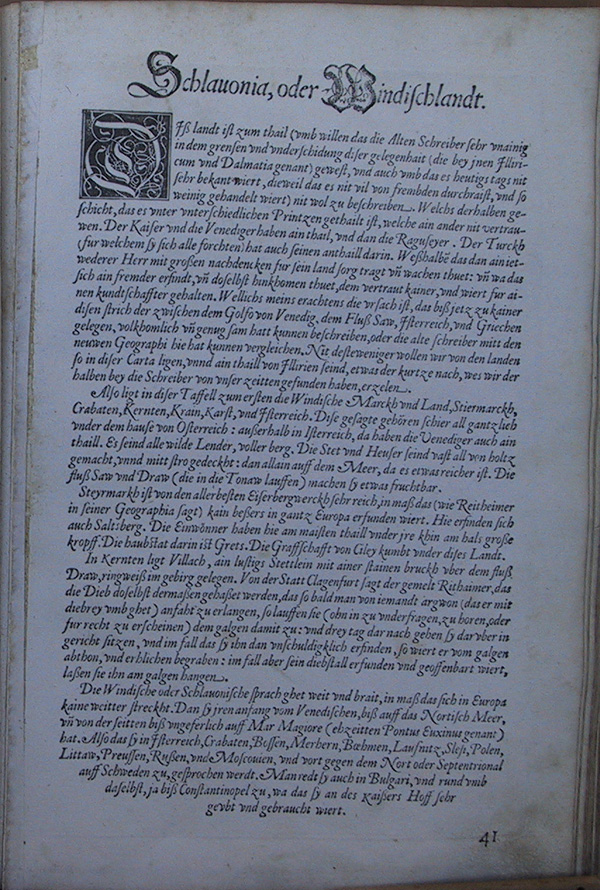 Schlauonia, oder Windischlandt.
Iß landt ist zum thail (vmb willen das die Alten Schreiber sehr vnainig
in dem grensen vnd vnderschidung diser gelegenhait (die bey jnen Illiri-
cum vnd Dalmatia genant) gewest, vnd auch vmb das es heutigs tags nit
sehr bekant wiert, dieweil das es nit vil von frembden durchraist, vnd so
weinig gehandelt wiert) nit wol zu beschreiben. Welchs derhalben ge-
schicht, das es vnter vnterschiedlichen Printzen gethailt ist, welche ain ander nit vertrau-
wen. Der Kaiser vnd die Venediger haben ain thail, vnd dan die Raguseyer. Der Turckh
(fur welchem sy sich alle forchten) hat auch seinen anthaill darin. Weßhalbē das dan ain iet-
wederer Herr mit großen nachdencken fur sein land sorg tragt vn̄ wachen thuet: vn̄ wa das
sich ain fremder erfindt, vn̄ doselbst hinkhomen thuet, dem vertraut kainer, vnd wiert fur ai-
nen kundtschaffter gehalten. Wellichs meins erachtens die vrsach ist, das biß jetz zu kainer
disen strich der zwischen dem Golfo von Venedig, dem Fluß Saw, Isterreich, vnd Griechen
gelegen, volkhomlich vn̄ genugsam hatt kunnen beschreiben, oder die alte schreiber mitt den
neuwen Geographi hie hat kunnen vergleichen. Nit desteweniger wollen wir von den landen
so in diser Carta ligen, vnnd ain thaill von Illirien seind, etwas der kurtze nach, wes wir der
halben bey die Schreiber von vnser zeitten gefunden haben, erzelen.
Also ligt in diser Taffell zum ersten die Windische Marckh vnd Land, Stiermarckh,
Crabaten, Kernten, Krain, Karst, vnd Isterreich. Dise gesagte gehören schier all gantzlich
vnder dem hause von Osterreich: außerhalb in Isterreich, da haben die Venediger auch ain
thaill. Es seind alle wilde Lender, voller berg. Die Stet vnd Heuser seind vast all von holtz
gemacht, vnnd mitt stro gedeckht: dan allain auff dem Meer, da es etwas reicher ist. Die
fluß Saw vnd Draw (die in die Tonaw lauffen) machen sy etwas fruchtbar.
Steyrmarkh ist von den allerbesten Eiserbergwerckh sehr reich, in maß das (wie Reitheimer
in seiner Geographia sagt) kain beßers in gantz Europa erfunden wiert. Hie erfinden sich
auch Saltzberg. Die Einwönner haben hie am maisten thaill vnder jre khin am hals große
kropff. Die haubstat darin ist Grets. Die Graffschafft von Ciley kumbt vnder dises Landt.
In Kernten ligt Villach, ain lustigs Stettlein mit ainer stainen bruckh vber dem fluß
Draw, ringweiß im gebirg gelegen. Von der Statt Clagenfurt sagt der gemelt Rithaimer, das
die Dieb doselbst dermaßen gehaßet werden, das so bald man von iemandt argwon (dat er mit
diebrey vmbghet) anfaht zu erlangen, so lauffen sie (ohn in zu vnderfragen, zu horen, oder
fur recht zu erscheinen) dem galgen damit zu: vnd drey tag dar nach gehen sy darvber in
gericht sitzen, vnd im fall das sy ihn dan vnschuldigklich erfinden, so wiert er vom galgen
abthon, vnd erhlichen begraben: im fall aber sein diebstall erfunden vnd geoffenbart wiert,
laßen sie ihn am galgen hangen.
Die Windische oder Schlauonische sprach ghet weit vnd brait, in maß das sich in Europa
kaine weitter streckht. Dan sy jren anfang vom Venedischen, biß auff das Nortisch Meer,
vn̄ von der seitten biß vngeferlich auff Mar Magiore (ehzeitten Pontus Euxinus genant)
hat. Also das sy in Isterreich, Crabaten, Bossen, Merhern, Bœhmen, Lausnitz, Slesi, Polen,
Littaw, Preussen, Rußen, vnd Moscouien, vnd vort gegen dem Nort oder Septentrional
auff Schweden zu, gesprochen werdt. Man redt sy auch in Bulgari, vnd rund vmb
daselbst, ja biß Constantinopel zu, wa das sy an des Kaißers Hoff sehr
geubt vnd gebraucht wiert.
41